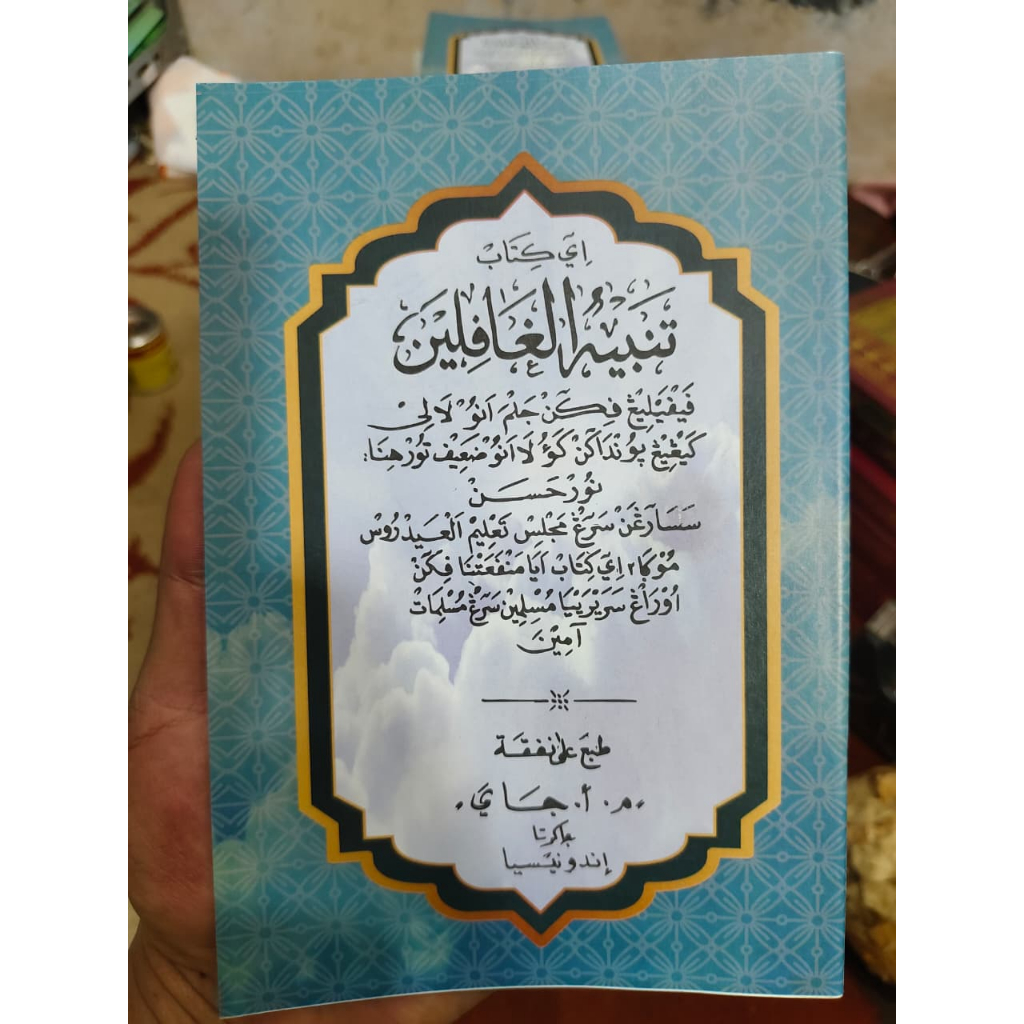 اِيَ كِتَابْ
تَنبِيهُ الغَافِلِين
فَيْڤَيْلِيڠْ فِكَنْ جَلْمَ اَنُوْ لَالِيْ
كَيْڠِيْڠْ ڽُوْنْدَاكَنْ كَوُلَا اَنُوْ ضَعِيْف تُوْرْ هِنَا:
نُوْرْ حَسَنْ
سَسَارَڠَنْ سَرَڠْ مَجْلِسْ تَعْلِيْم اَلْعَيْدَرُوْسْ
مُوْݢَا٢ اِيَ كِتَابْ اَيَا مَنْفَعَتْنَا فِكَنْ
اُوْرَاڠْ سَرَيْرَيْيَا مُسْلِمِيْن سَرَڠْ مُسْلِمَاتْ
آمِيْنَ
طبع على نفقة
م. أ. جَايَ
جاكرتا
إندونيسيا